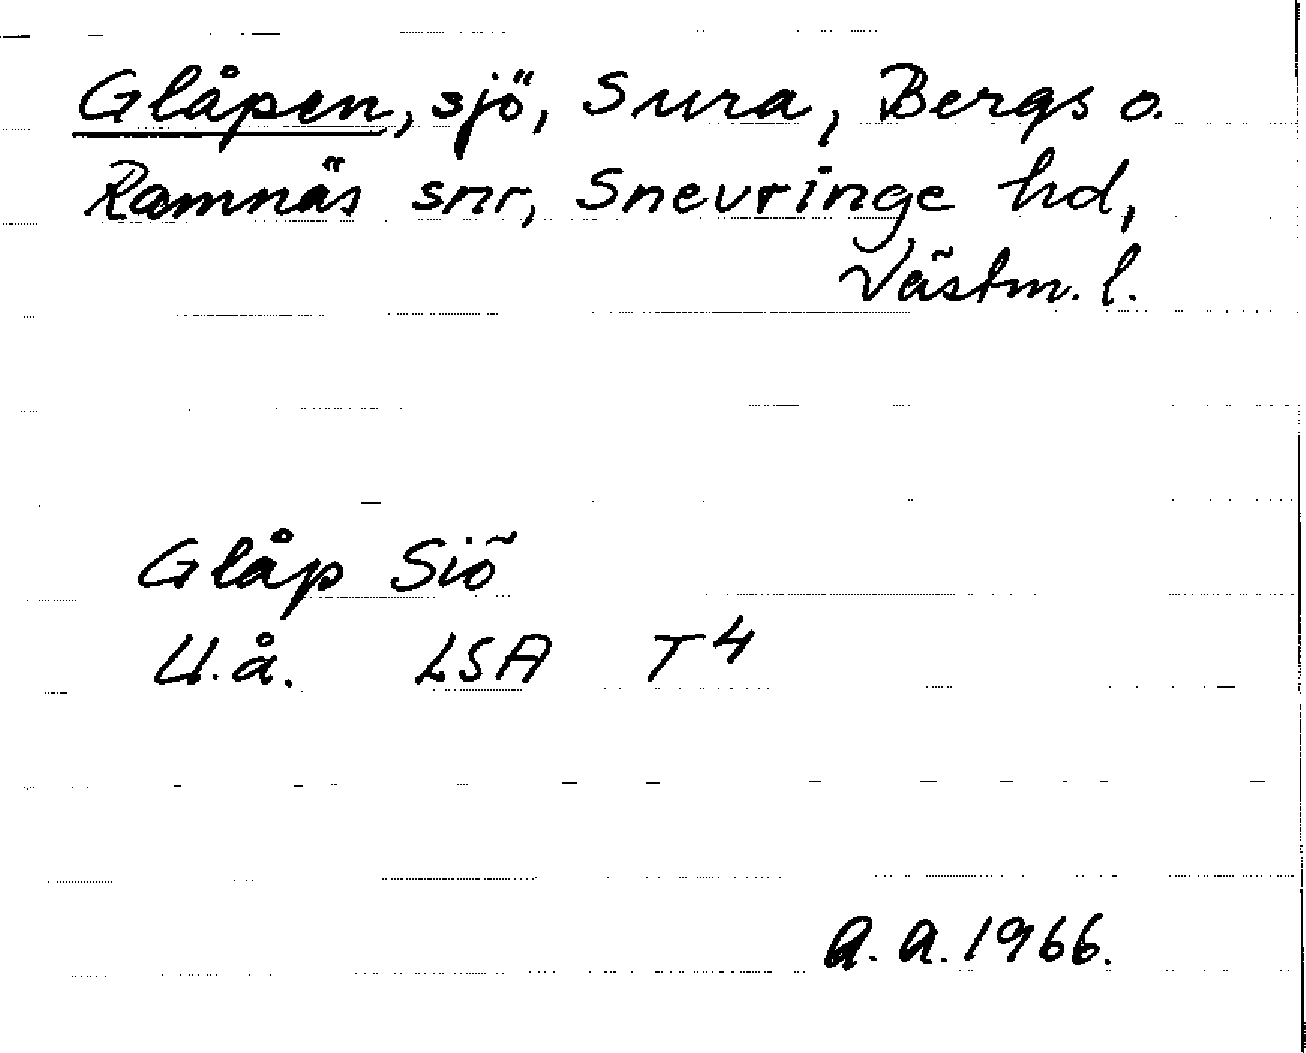 Glåpen, sjö, Sura, Bergs o.
Ramnäs snr, Snevringe hd,
Västm. l.
Glåp Siö
U.å. LSA T4
A. A. 1966.